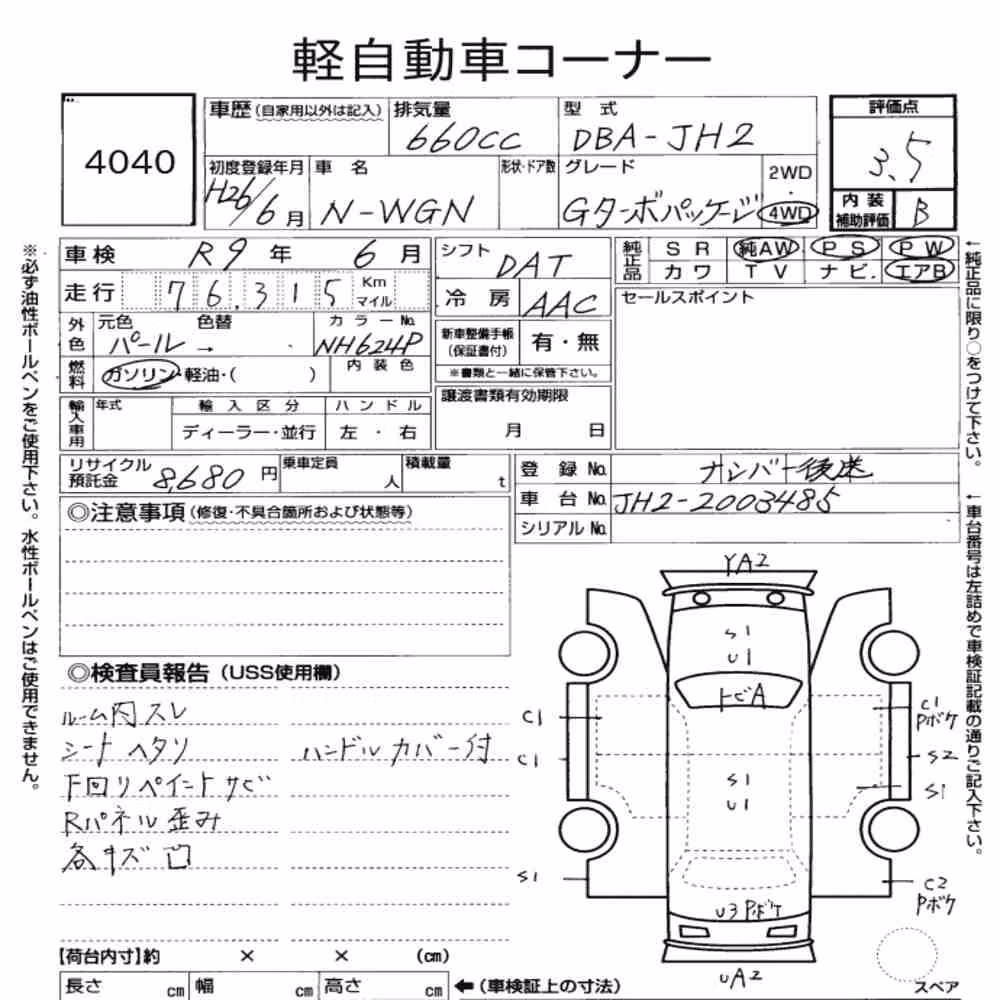 軽自動車コーナー
4040
車歴(自家用以外は記入) 排気量 660CC 型 式 DBA-JH2
評価点 3.5
初度登録年月 H26/6月 車 名 N-WGN 形状・ドア数 グレード Gターボパッケージ 2WD・4WD
内装補助評価 B
車検 R9年 6月
走行 76,315 Km マイル
外色 元色 パール → 色替 カラーNo. NH624P
燃料 ガソリン・軽油・( ) 内装色
輸入車用 年式 輸入区分 ディーラー・並行 ハンドル 左・右
シフト DAT
冷房 AAC
新車整備手帳(保証書付) 有・無
※書類と一緒に保管下さい。
譲渡書類有効期限 月 日
純正品 SR 純AW PS PW
カワ TV ナビ. エアB
セールスポイント
リサイクル預託金 8,680円 乗車定員 人 積載量 t
登録No. ナンバー後送
車台No. JH2-2003485
シリアルNo.
◎注意事項(修復・不具合箇所および状態等)
◎検査員報告(USS使用欄)
ルーム内スレ
シートヘタリ ハンドルカバー付
F回リペイントサビ
Rパネル歪み
各キズ凹
YA2
S1
U1
トビA
C1
C1
Pボケ
C1
S2
S1
U1
S1
S1
C2
Pボケ
U3 Pボケ
UA2
スペア
【荷台内寸】約 × × (cm)
長さ cm 幅 cm 高さ cm ←(車検証上の寸法)
※必ず油性ボールペンをご使用下さい。水性ボールペンはご使用できません。
←純正品に限り○をつけて下さい。
←車台番号は左詰めで車検証記載の通りご記入下さい。